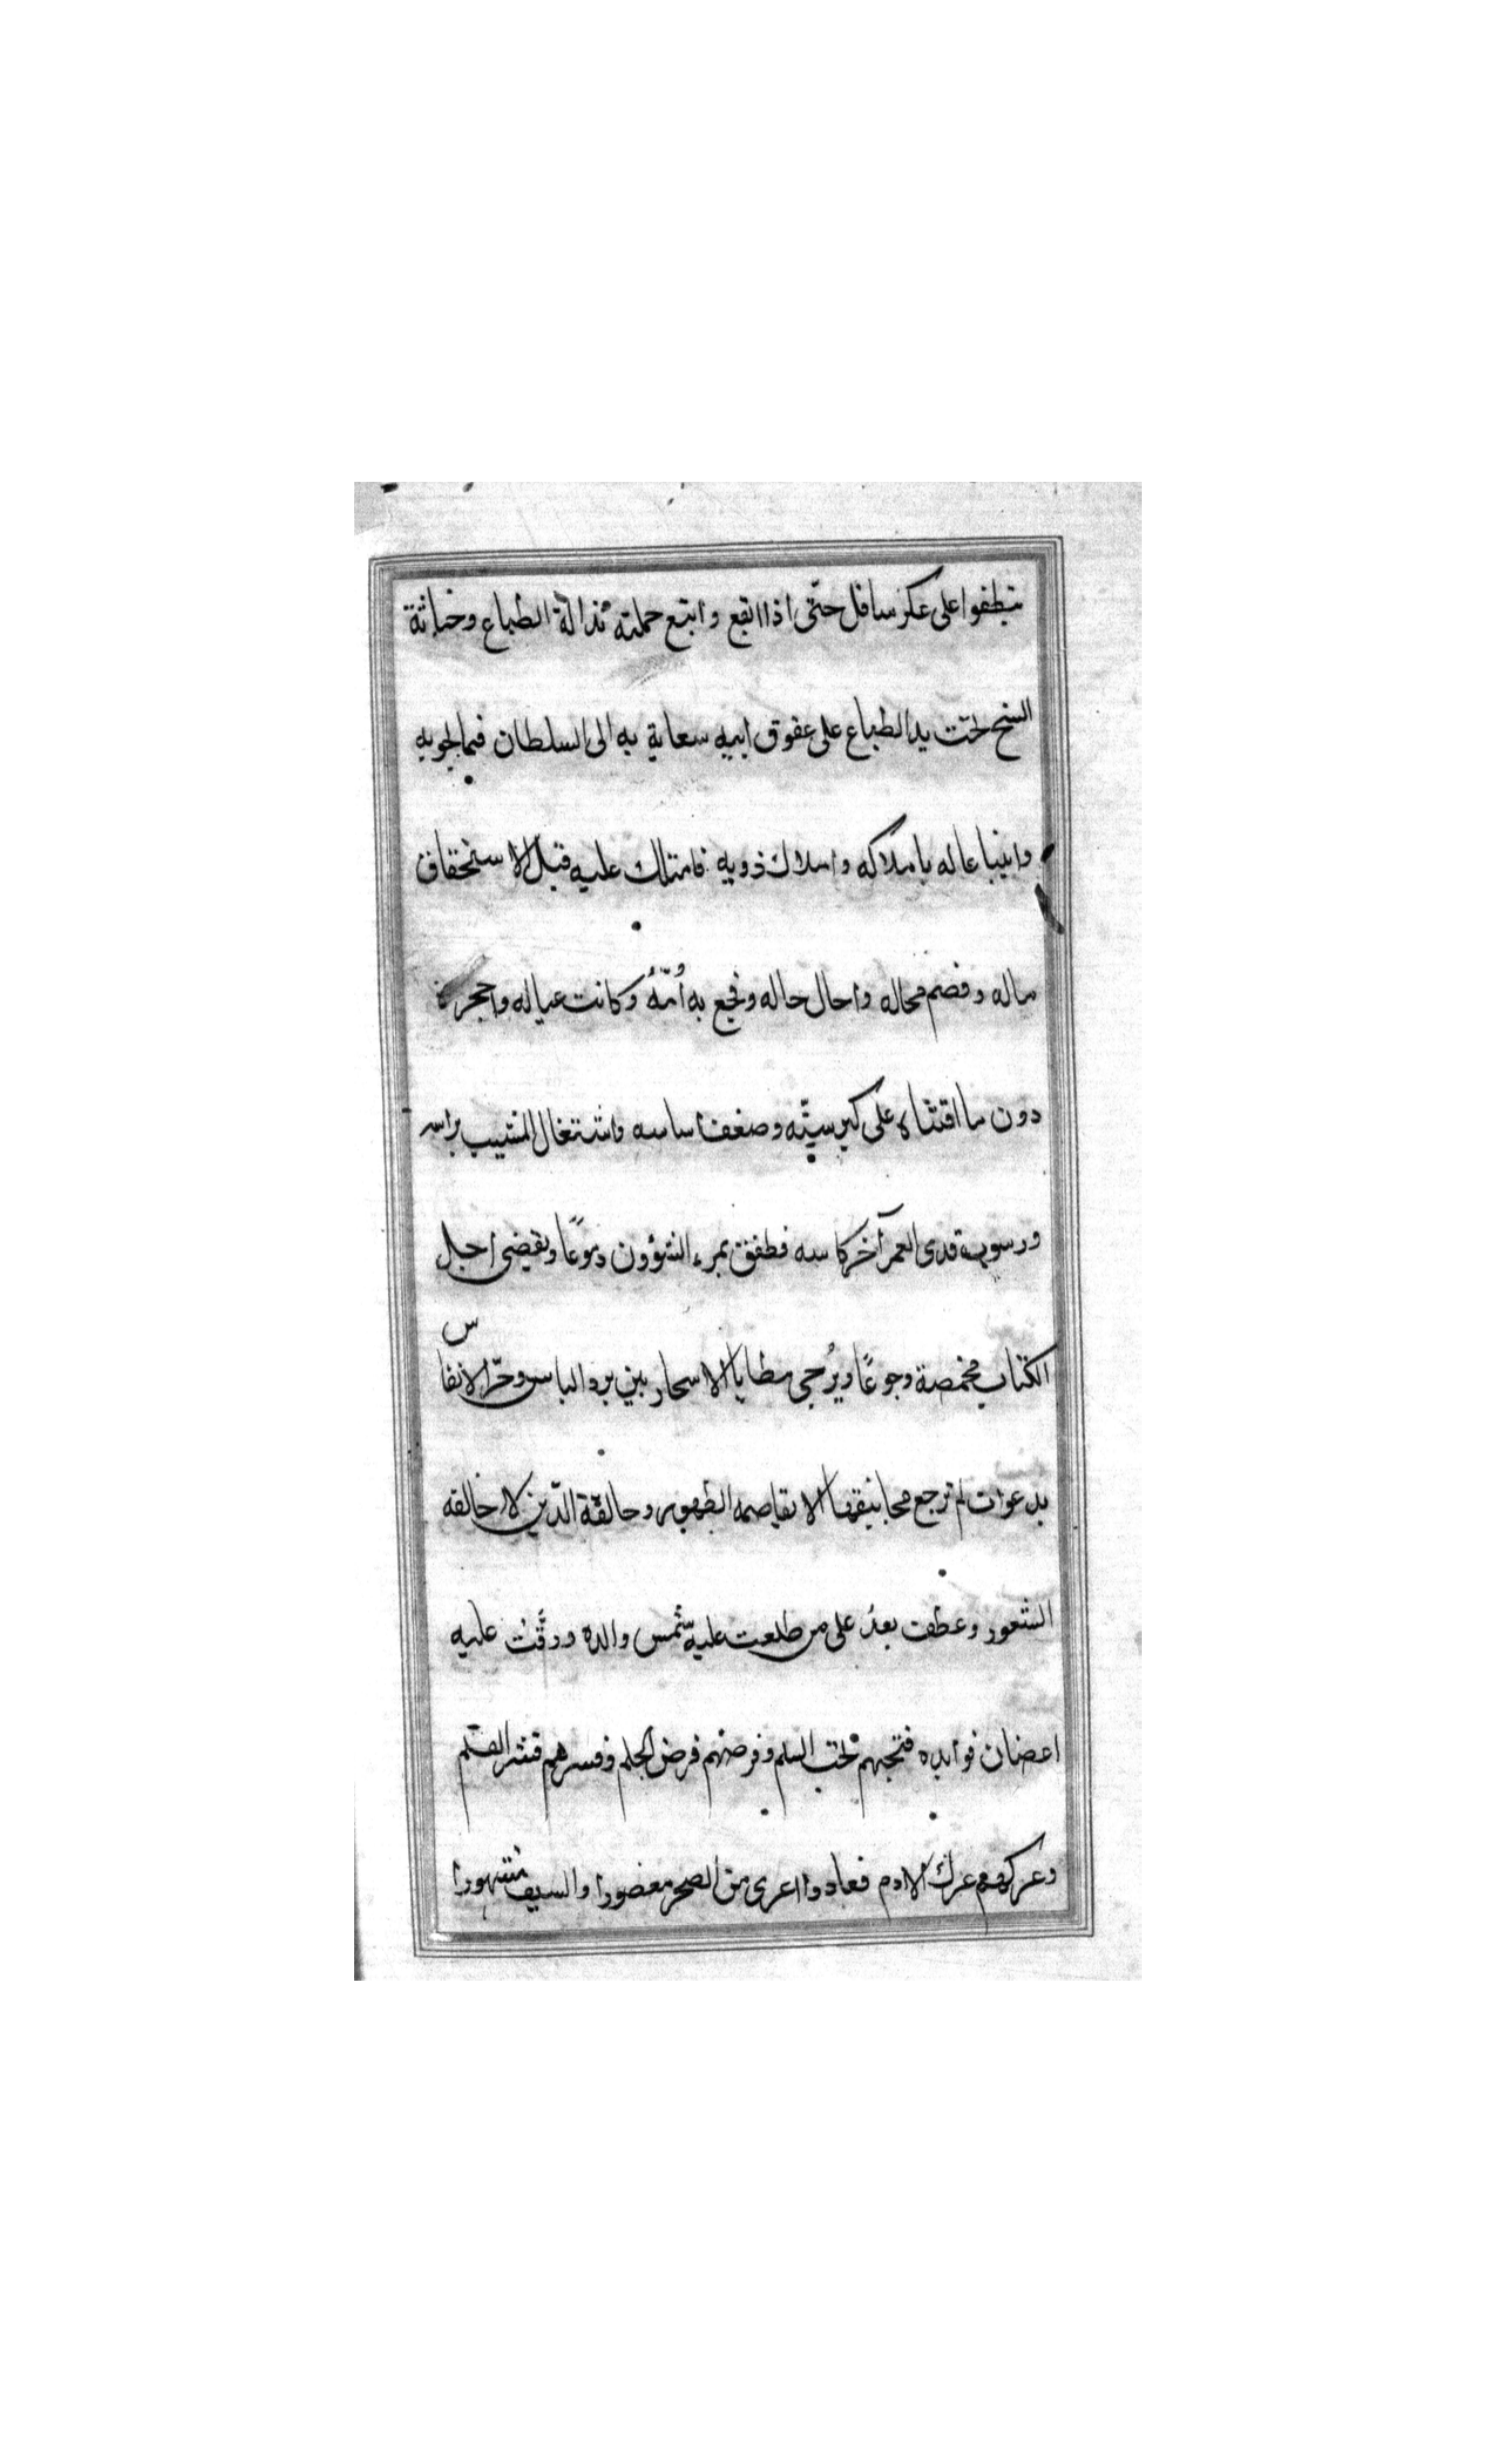 ينطفوا على عكر سافل حتى اذا ايفع و ايتع حملته نذالة الطباع و خباثة
السنخ تحت يد الطباع على عقوق ابيه سعاية به الى السلطان فيما يحويه
و ايتباعا له باملاكه و املاك ذويه فامتلك عليه قبل الاستحقاق
ماله و فصم محاله و احال حاله و فجع به اُمّهُ و كانت عياله و احجره
دون ما اقتناه على كبر سنّه و ضعف اساسه و اشتعال المشيب براسه
و رسوب قذى العمر آخر كاسه فطفق يمرء الشؤون دموعًا و يقضي اجل
الكتاب مخمصة و جوعًا و يُزجى مطايا الاسحار بين برد الياس و حرّ الانفاس
بدعوات لم ترجع مجانيقها الا بقاصمة الظهور و حالقة الدّين لا حالقة
الشعور و عطف بعدُ على من طلعت عليه شمس والده و رقّت عليه
اغصان فوايده فنحتهم نحت السلم و قرضهم قرض الجلم و قسرهم قشر القلم
و عركهم عرك الادم فعادوا اعرى من الصخر مغضورا و السيف مشهورا